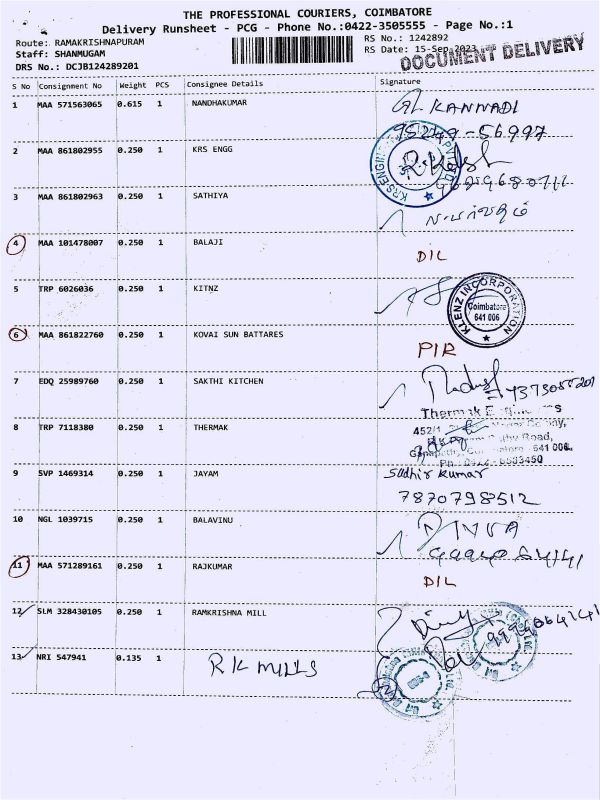 THE PROFESSIONAL COURIERS, COIMBATORE
Delivery Runsheet - PCG - Phone No.:0422-3505555 - Page No.:1
Route: RAMAKRISHNAPURAM RS No.: 1242892
Staff: SHANMUGAM RS Date: 15-Sep-2023
DRS No.: DCJB124289201 DOCUMENT DELIVERY
S No Consignment No Weight PCS Consignee Details Signature
1 MAA 571563065 0.615 1 NANDHAKUMAR KANNADI
95249-56997
2 MAA 861802955 0.250 1 KRS ENGG
3 MAA 861802963 0.250 1 SATHIYA
4 MAA 101478007 0.250 1 BALAJI DIL
5 TRP 6026036 0.250 1 KITNZ KLENZ INCORPORATION
Coimbatore
641 006
6 MAA 861822760 0.250 1 KOVAI SUN BATTARES PIR
7 EDQ 25989760 0.250 1 SAKTHI KITCHEN
8 TRP 7118380 0.250 1 THERMAK Thermak
452/1
Road,
641 006.
9 SVP 1469314 0.250 1 JAYAM Sudhir Kumar
7870798512
10 NGL 1039715 0.250 1 BALAVINU
11 MAA 571289161 0.250 1 RAJKUMAR DIL
12 SLM 328430105 0.250 1 RAMKRISHNA MILL
13 NRI 547941 0.135 1 RK MILLS